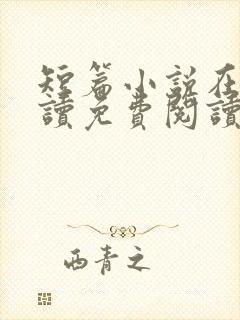 短篇小说在
讀免費閱讀
西青之